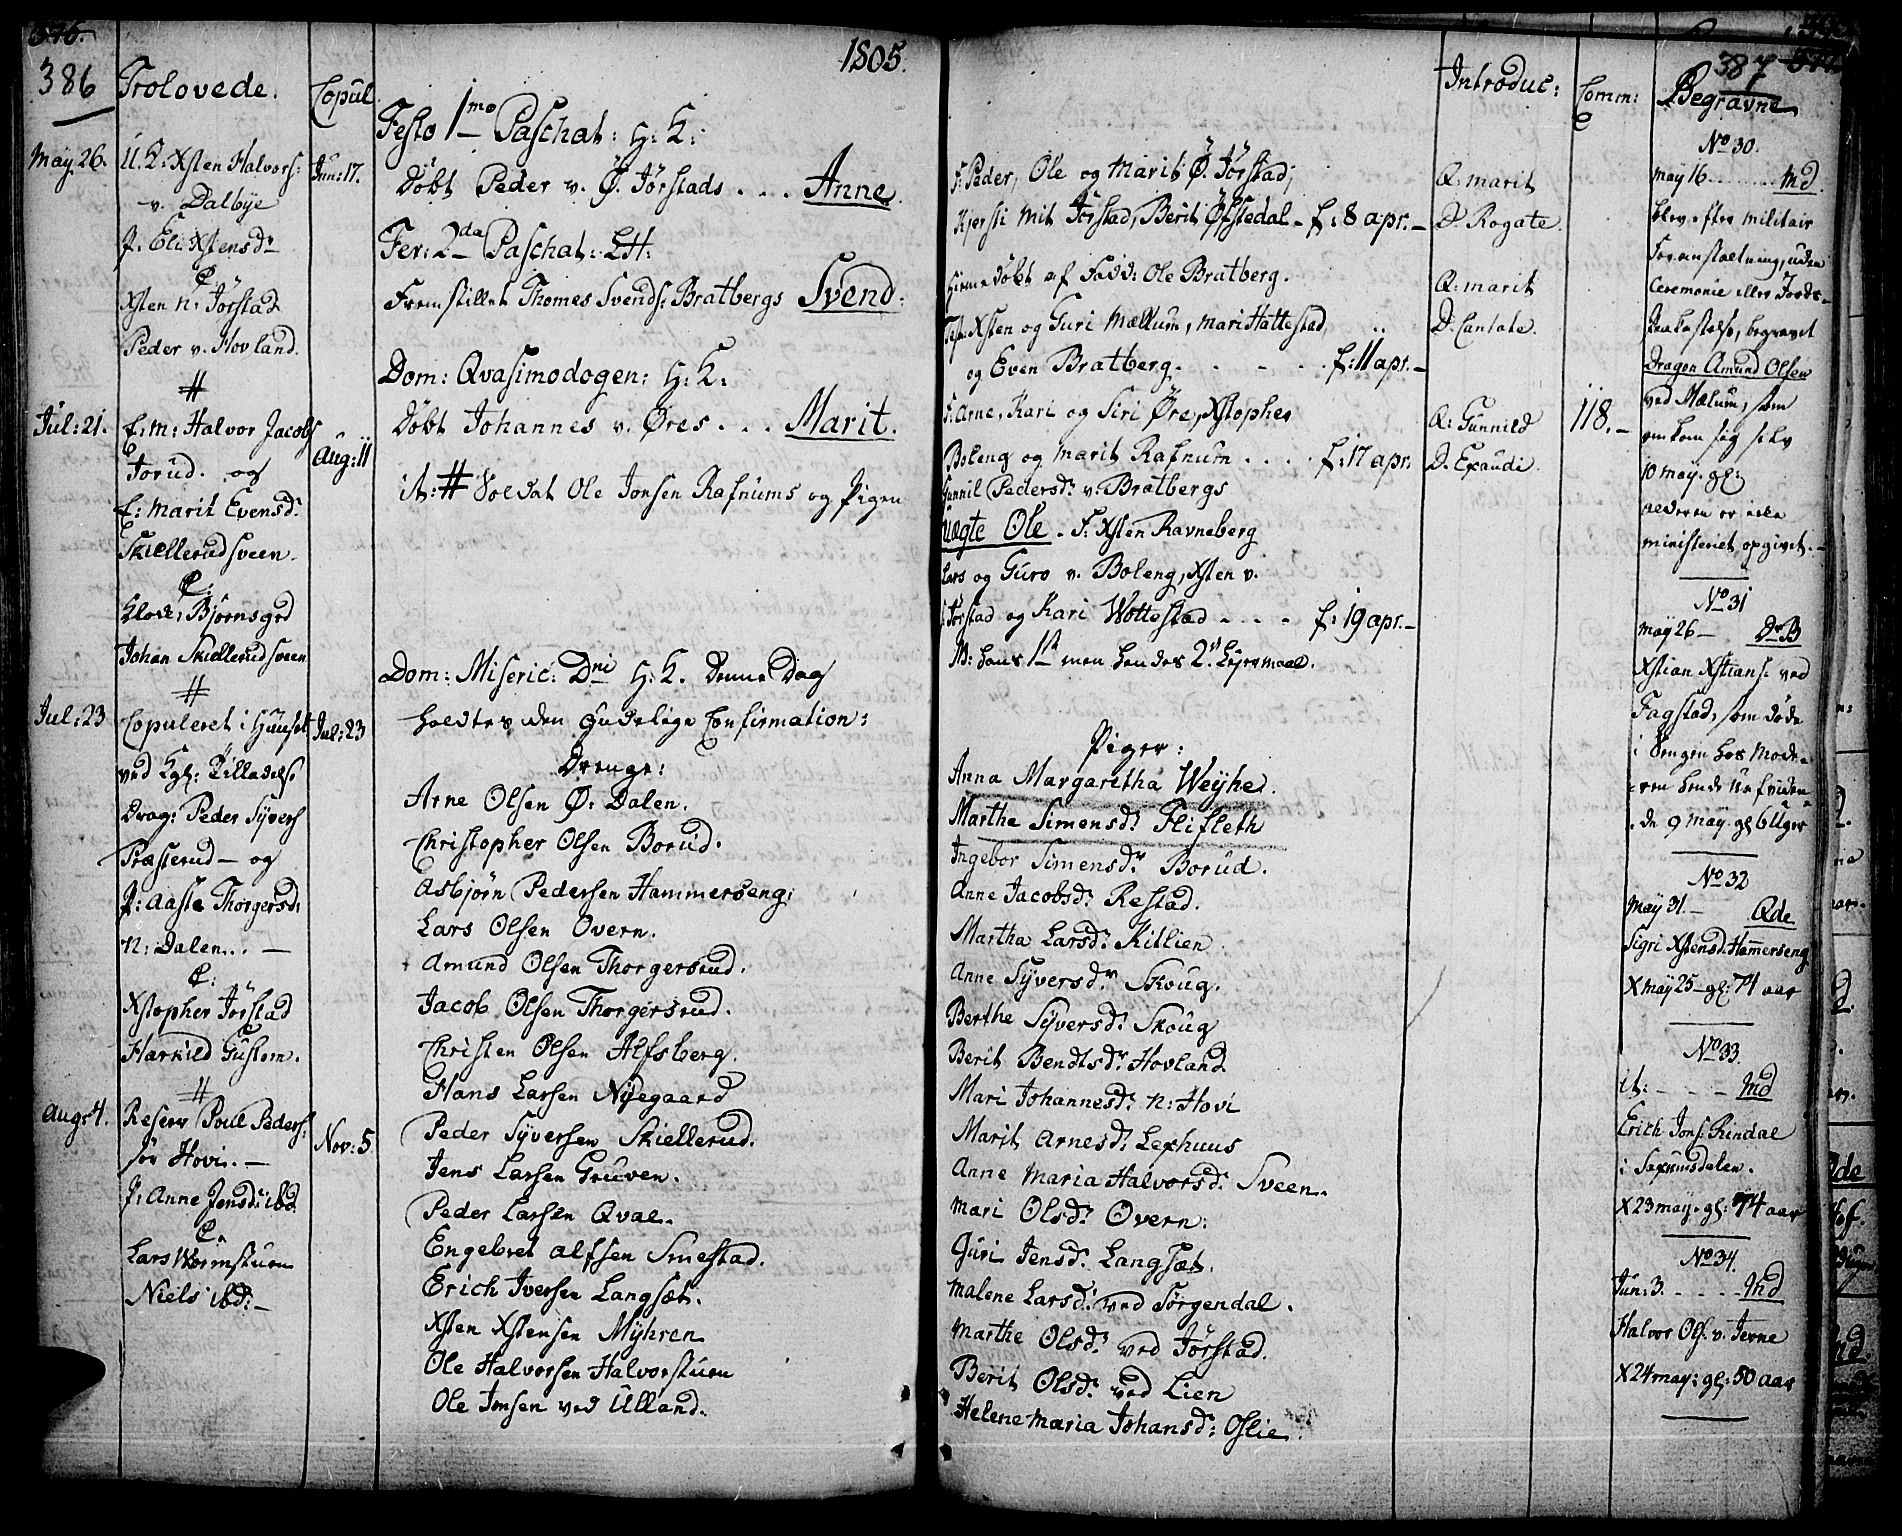 386
Trolovede.
Copul.
May 26.
U. K: Xsten Halvors:
v. Dalbye
P. Eli Xstensdr
C
Xsten n: Jörstad
Peder v. Hovland.
#
Jul: 21.
E: m: Halvor Jacobs
Jorud. og
E: Marit Evensdr
Skiellerudsveen.
C:
Klock: Bjørnsgrd
Johan Skiellerudsveen
#
Jul: 23
Copuleret i Huuset
ved Kgl: Tilladelse
Drag: Peder Syvers
Præsterud - og
P: Aaste Thorgersd:
n: Dalen... -
C:
Xstopher Jörstad
Harkild Gustom.
#
Aug: 4.
Reserv Poul Peders:
sør Hovi. -
P: Anne Jensd: ibd
C.
Lars Wormstuen
Niels ibd: -
Jun: 17.
Aug: 11
Jul: 23
Nov: 5
1805.
Festo 1mo Paschat: H: K:
Döbt Peder v. Ö. Jörstads ... Anne.
Fer: 2da Paschat: LH:
Fremstillet Thomes Svends: Bratbergs Svend:
Dom: Qvasimodogen: H: K:
Döbt Johannes v. Öres ... Marit.
it: # Soldat Ole Jonsen Rafnums og Pigen
Dom: Miseric: Dni H: K. Denne Dag
holdtes den Gudelige Confirmation:
Drenge:
Arne Olsen Ö: Dalen.
Christopher Olsen Borud.
Asbjørn Pedersen Hammerseng:
Lars Olsen Overn.
Amund Olsen Thorgersrud.
Jacob Olsen Thorgersrud.
Christen Olsen Alfsberg.
Hans Larsen Nygaard
Peder Syversen Skiellerud.
Jens Larsen Gruven.
Peder Larsen Qvae.
Engebret Alfsen Smestad.
Erich Iversen Langsæt.
Xsten Xstensen Myhren
Ole Halvorsen Halvorstuen
Ole Jonsen ved Ulland.
F: Peder, Ole og Marit Ö. Jörstad,
Kjersti Mit Jörstad, Berit Öfstedal - f: 8 apr. -
Hiemedöbt af Fadd: Ole Bratberg.
Test: Xsten og Guri Mællum, Mari Hattestad,
og Even Bratberg. . - . . f: 11 apr. -
F: Arne, Kari og Siri Öre, Xstopher
Boleng og Marit Rafnum .... f: 17 apr.
Gunnil Pedersdr v. Bratbergs
Uægte Ole. F: Xsten Ravneberg
Lars og Guro v. Boleng, Xsten v.
Jörstad og Kari Wottestad .... f: 19 apr. -
NB: hans 1st men hendes 2d Leyersmaal.
Piger:
Anna Margaretha Weyhe.
Marthe Simensdr Flifleth
Ingebor Simensdr Borud.
Anne Jacobsdr Restad.
Martha Larsdr Killien.
Anne Syversdr Skoug.
Berthe Syversdr Skoug
Berit Bendtsdr Hovland
Mari Johannesdr n: Hovi
Marit Arnesdr Lexhuus
Anne Maria Halvorsdr Sveen.
Mari Olsdr Overn.
Guri Jensdr Langsæt.
Malene Larsdr ved Sörgendal.
Marthe Olsdr ved Jörstad.
Berit Olsdr ved Lien
Helene Maria Johansd: Oslie.
Introduc:
Q: Marit
D. Rogate.
Q: Marit
D. Cantate.
Q: Gunnild
D. Exaudi.
Comm:
118. -
387
Begravne
No 30.
May 16 ....... Md.
blev efter militair
Foranstaltning, uden
Ceremonie eller Jords-
Paakastelse, begravet
Dragon Amund Olsen
ved Mælum, som
omkom sig selv
10 may. gl:
alderen er ikke
ministeriet opgivet. -
No 31
May 26 - Dr B
Xstian Xstians: ved
Fagstad, som døde
i Sengen hos Mode-
ren hende uafviden-
de 9 may. gl 6 Uger
No 32
May 31. - Qde
Sigri Xstensd: Hammerseng
X may 25 - gl: 74 aar
No 33.
it: - - - Md
Erich Jons: Rindal
i Saxumsdalen.
X 23 may. gl: 74 aar
No 34.
Jun: 3. - - - Md
Halvor Ols: v. Jevne
X 24 may: gl: 50 aar